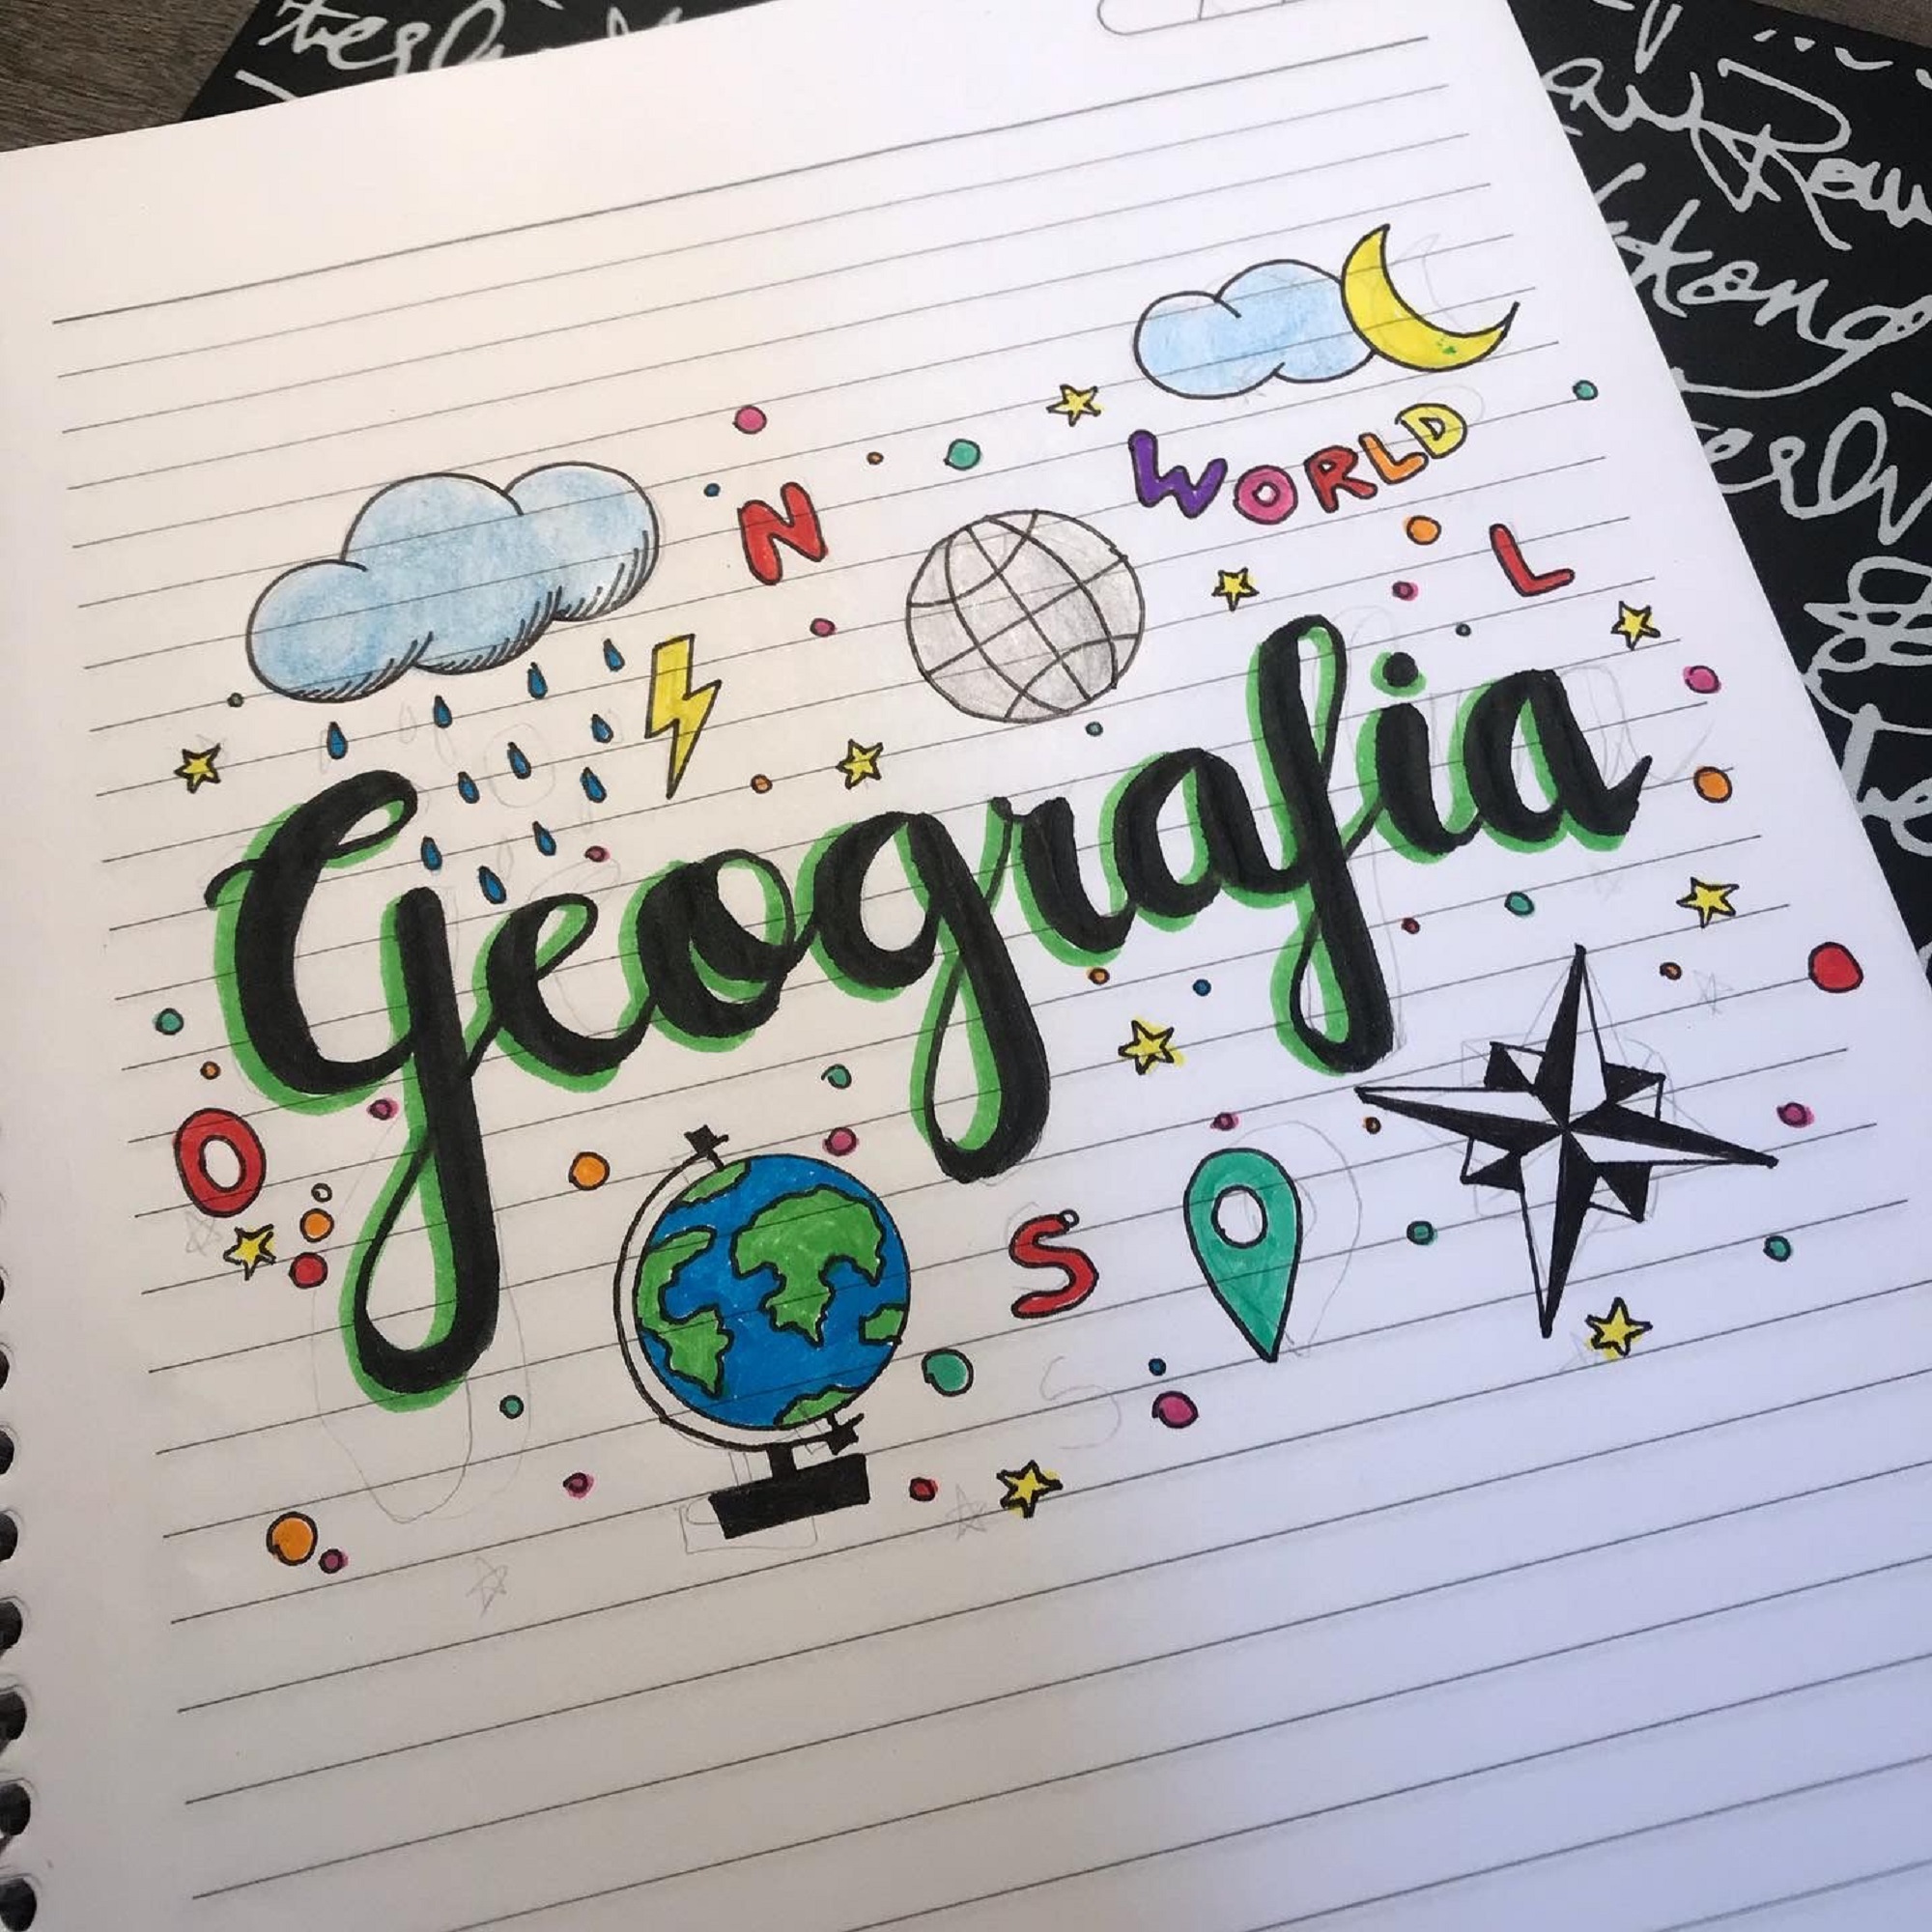 WORLD
N
L
Geografia
O
S